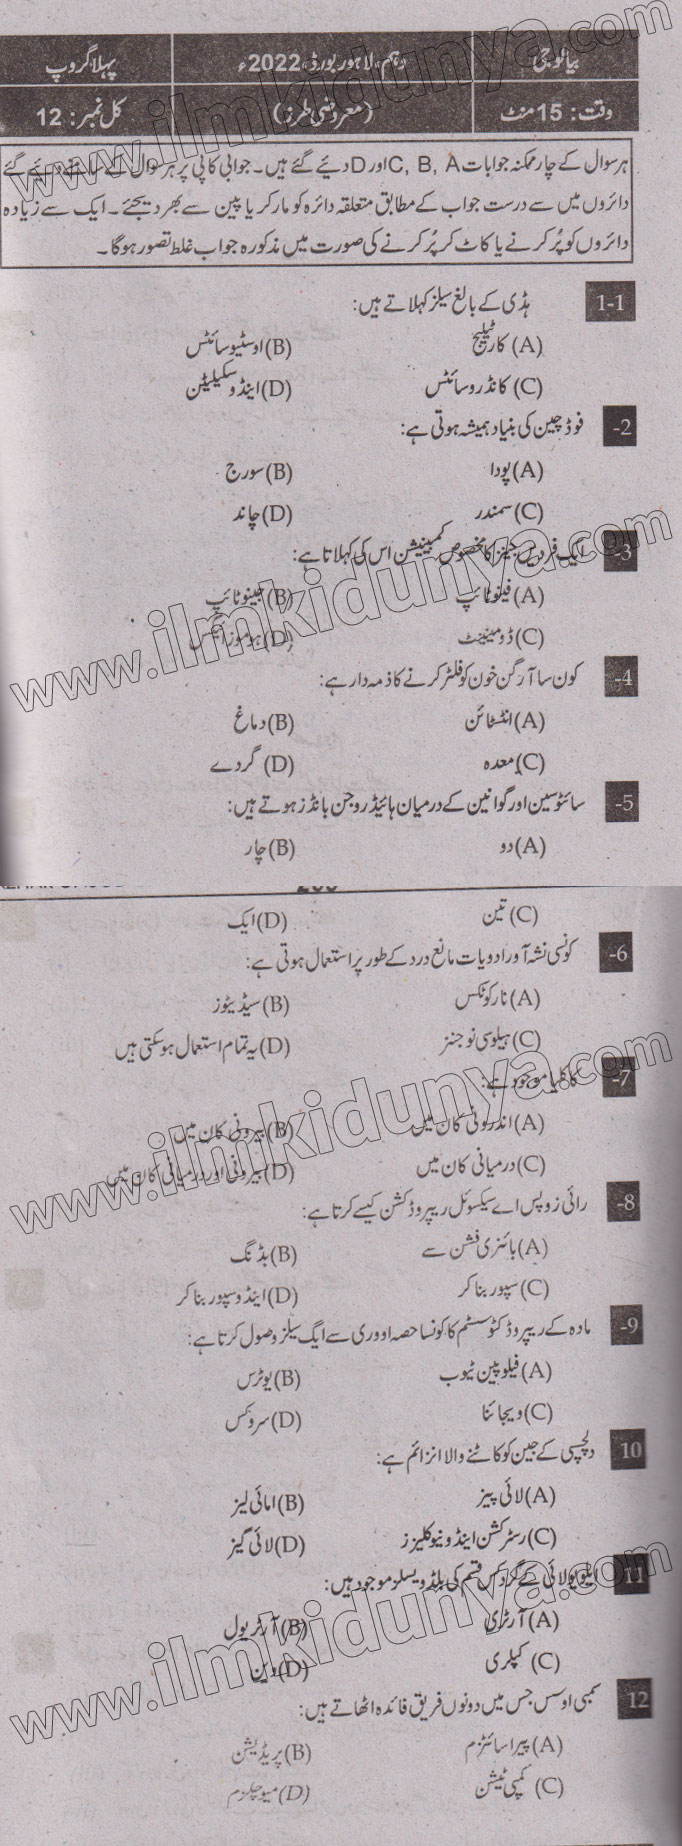 بیالوجی دہم، لاہور بورڈ، 2022ء پہلا گروپ
وقت: 15 منٹ (معروضی طرز) کل نمبر: 12
ہر سوال کے چار ممکنہ جوابات C, B, A اور D دیئے گئے ہیں۔ جوابی کاپی پر ہر سوال کے سامنے دیئے گئے
دائروں میں سے درست جواب کے مطابق متعلقہ دائرہ کو مارکر یا پین سے بھر دیجئے۔ ایک سے زیادہ
دائروں کو پُر کرنے یا کاٹ کر پُر کرنے کی صورت میں مذکورہ جواب غلط تصور ہوگا۔
1-1 ہڈی کے بالغ سیلز کہلاتے ہیں:
(A) کارٹیلیج (B) اوسٹیوسائٹس
(C) کانڈروسائٹس (D) اینڈوسکیلیٹن
2- فوڈ چین کی بنیاد ہمیشہ ہوتی ہے:
(A) پودا (B) سورج
(C) سمندر (D) چاند
3- ایک فرد میں جینز کا مخصوص کمبینیشن اس کی کہلاتا ہے:
(A) فینوٹائپ (B) جینوٹائپ
(C) ڈومیننٹ (D) ہوموزائیگس
4- کون سا آرگن خون کو فلٹر کرنے کا ذمہ دار ہے:
(A) انٹسٹائن (B) دماغ
(C) معدہ (D) گردے
5- سائٹوسین اور گوانین کے درمیان ہائیڈروجن بانڈز ہوتے ہیں:
(A) دو (B) چار
(C) تین (D) ایک
6- کونسی نشہ آور ادویات مانع درد کے طور پر استعمال ہوتی ہے:
(A) نارکوٹکس (B) سیڈیٹوز
(C) ہیلوسی نوجنز (D) یہ تمام استعمال ہوسکتی ہیں
7- کاکلیا موجود ہے:
(A) اندرونی کان میں (B) بیرونی کان میں
(C) درمیانی کان میں (D) بیرونی اور درمیانی کان میں
8- رائی زوپس اے سیکسوئل ریپروڈکشن کیسے کرتا ہے:
(A) بائنری فشن سے (B) بڈنگ
(C) سپور بنا کر (D) اینڈوسپور بنا کر
9- مادہ کے ریپروڈکٹو سسٹم کا کونسا حصہ اووری سے ایگ سیلز وصول کرتا ہے:
(A) فیلوپین ٹیوب (B) یوٹرس
(C) ویجائنا (D) سروکس
10 دلچسپی کے جین کو کاٹنے والا انزائم ہے:
(A) لائی پیز (B) امائی لیز
(C) رسٹرکشن اینڈونیوکلیزز (D) لائی گیز
11 ایلویولائی کے گرد کس قسم کی بلڈ ویسلز موجود ہیں:
(A) آرٹری (B) آرٹریول
(C) کیپلری (D) وین
12 سمبی اوسس جس میں دونوں فریق فائدہ اٹھاتے ہیں:
(A) پیراسائٹزم (B) پریڈیشن
(C) کمپی ٹیشن (D) میوچلزم
www.ilmkidunya.com
www.ilmkidunya.com
www.ilmkidunya.com
www.ilmkidunya.com